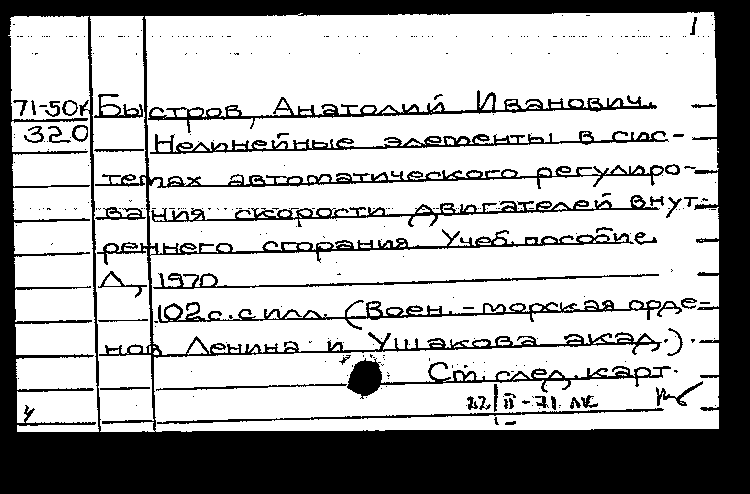 1
71-50к Быстров, Анатолий Иванович.
320 Нелинейные элементы в сис-
темах автоматического регулиро-
вания скорости двигателей внут-
реннего сгорания. Учеб. пособие.
Л., 1970.
102 с. с илл. (Воен.-морская орде-
нов Ленина и Ушакова акад.).
См. след. карт.
22/II-71 ЛК